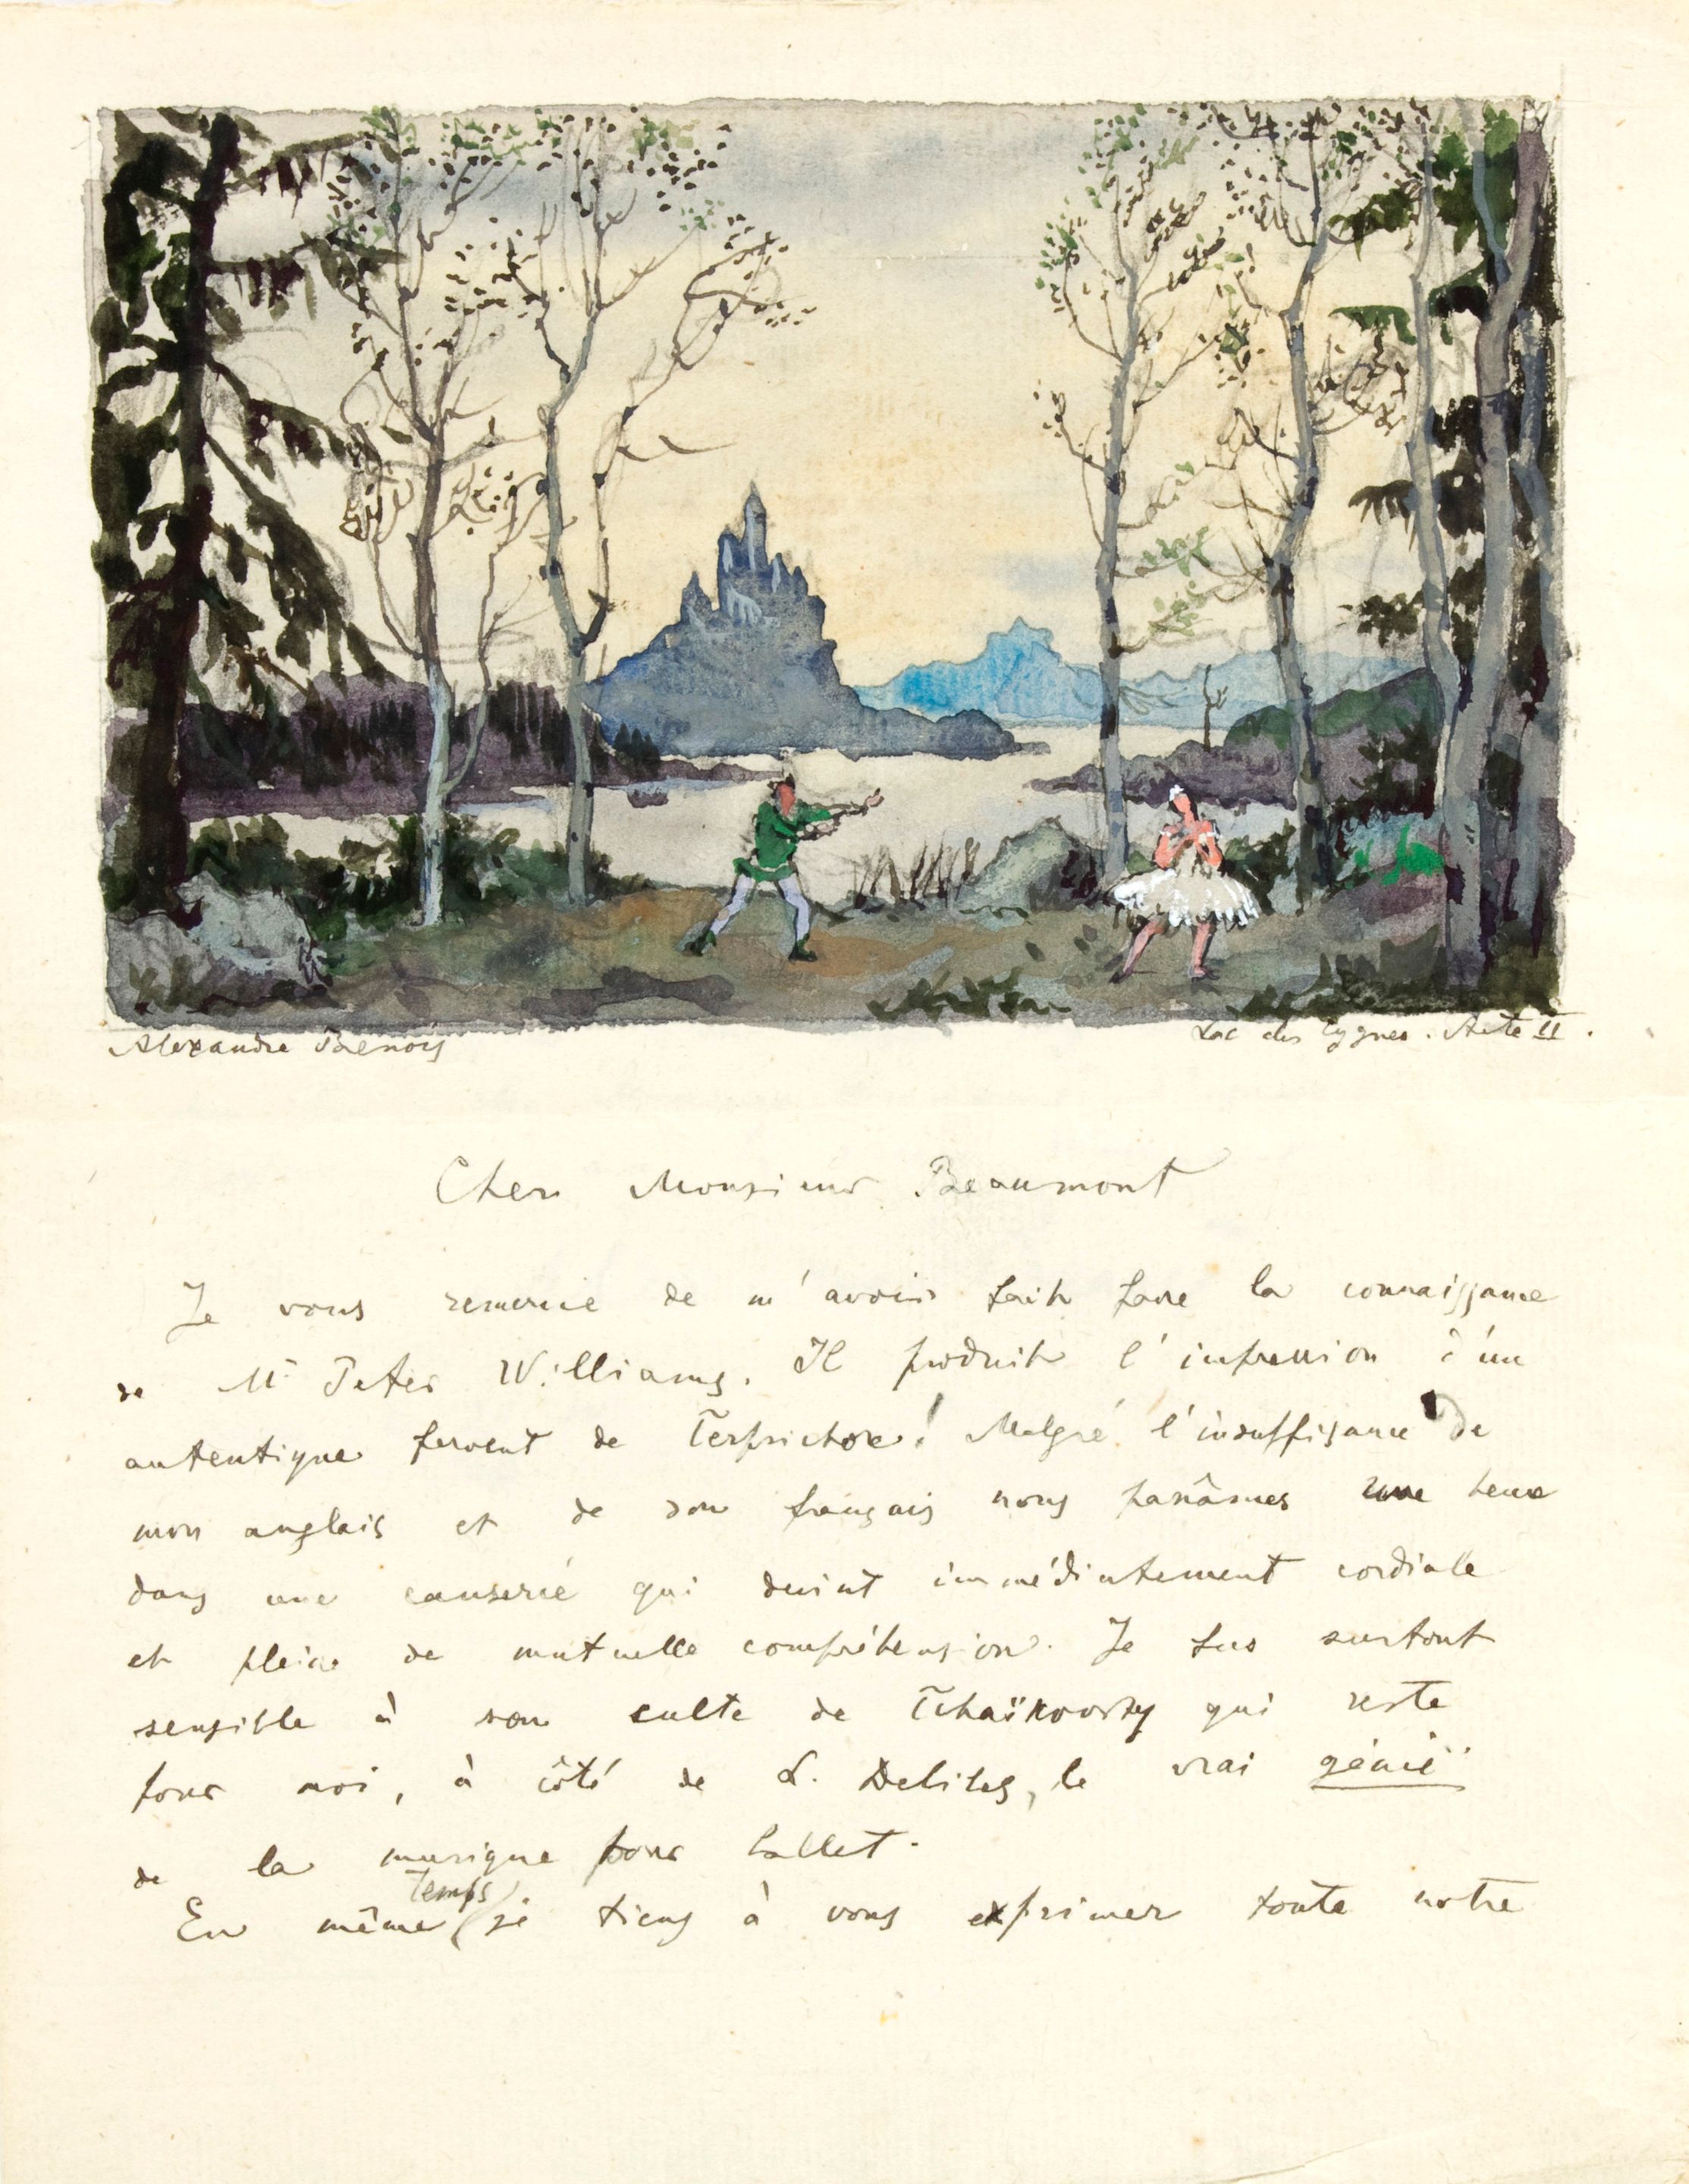 Alexandre Benois
Lac des Cygnes. Acte II.
Cher Monsieur Beaumont
Je vous remercie de m'avoir fait faire la connaissance
de Mr Peter Williams. Il produit l'impression d'un
autentique fervent de Terpsichore! Malgré l'insuffisance de
mon anglais et de son français nous passâmes une heure
dans une causerie qui devint immédiatement cordiale
et pleine de mutuelle compréhension. Je fus surtout
sensible à son culte de Tchaïkovsky qui reste
pour moi, à côté de L. Delibes, le vrai génie
de la musique pour ballet.
En même temps je tiens à vous exprimer toute notre